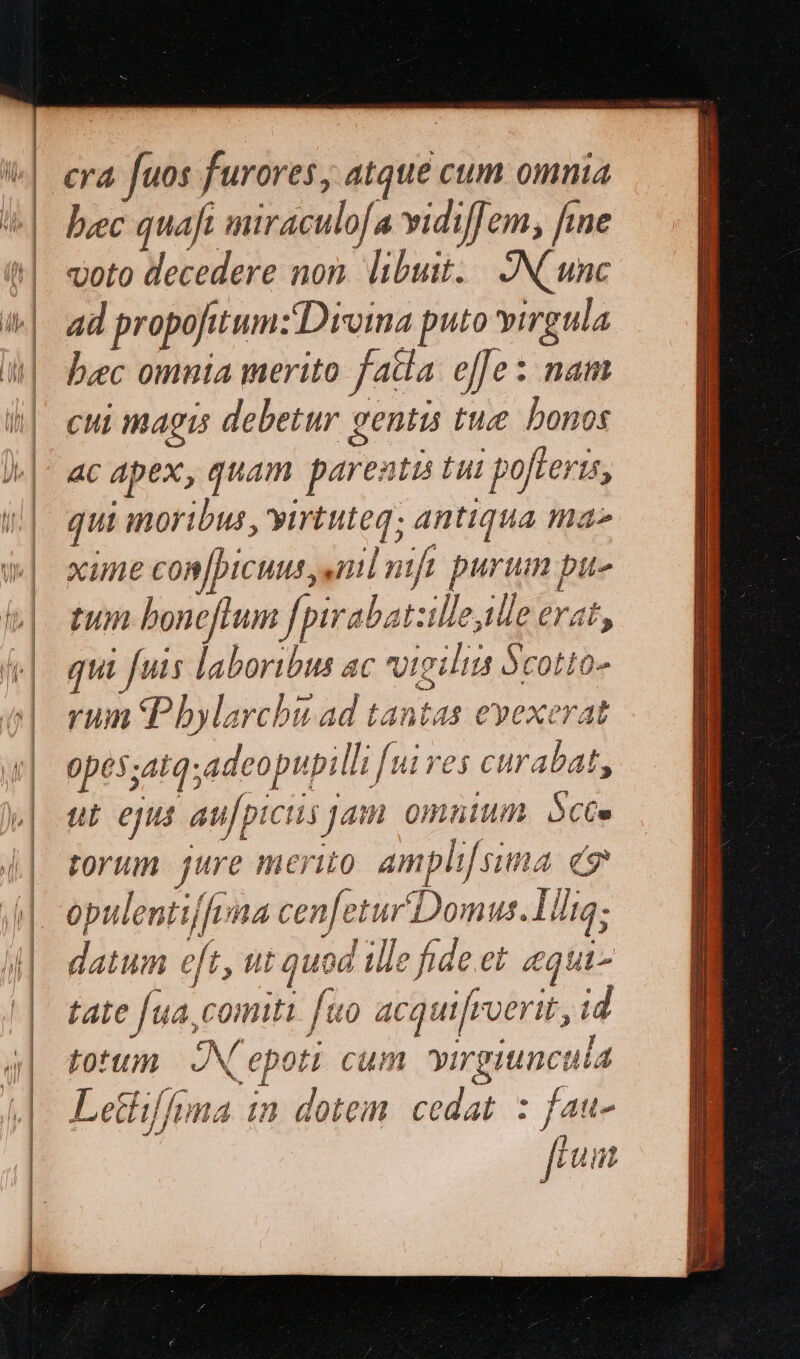 cra ſuos furores, atque cum omnia
hæc quaſi miraculoſa vidiſſem, ſine
voto decedere non libuit. Nunc
ad propoſitum: Divina puto virgula
hæc omnia merito facta eſſe: nam
cui magis debetur gentis tuæ honos
ac apex, quam parentis tui poſteris,
qui moribus, virtuteq; antiqua ma-
xime conſpicuus, nil niſi purum pu-
tum honeſtum ſpirabat: ille, ille erat,
qui ſuis laboribus ac vigiliis Scotto-
rum Phylarchū ad tantas evexerat
opes; atq; adeo pupilli ſui res curabat,
ut ejus auſpiciis jam omnium Scot-
torum jure merito ampliſsima &
opulentiſſima cenſetur Domus. Illiq;
datum eſt, ut quod ille fide et æqui-
tate ſua, comiti ſuo acquiſiverit, id
totum Nepoti cum virgiuncula
Lectiſſima in dotem cedat : fau-
ſtum